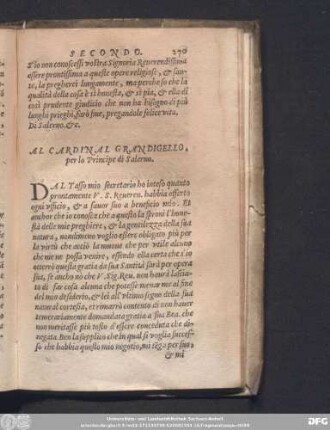 SECONDO. 270
S'io non conoscessi vostra Signoria Reverendissima
essere prontissima a queste opere religiose, & san-
te, la pregherei lungamente, ma perche so che la
qualità della cosa è sì honesta, & sì pia, & ella di
così prudente giudicio che non ha bisogno di più
lunghi prieghi, farò fine, pregandole felice vita.
Di Salerno. &c.
AL CARDINAL GRANDIGELLO,
per lo Principe di Salerno.
DAL Tasso mio secretario ho inteso quanto
prontamente V. S. Reveren. habbia offerto
ogni ufficio, & a favor suo a beneficio mio. Et
anchor che io conosca che a questo la sproni l'hone-
stà delle mie preghiere, & la gentilezza della sua
natura, nondimeno voglio essere obligato più per
la virtù che acciò la muove che per utile alcuno
che me ne possa venire, essendo ella certa che s'io
otterrò questa gratia da sua Santità sarà per opera
sua, se ancho nò che V. Sig. Reu. non haurà lascia-
to di far cosa alcuna che potesse menarme al fine
del mio desiderio, & lei all'ultimo segno della sua
natural cortesia, et rimarrò contento di non haver
temerariamente domandata gratia a sua Bea. che
non meritasse più tosto d'essere conceduta che di-
negata. Ben la supplico che in qual si voglia succes-
so che habbia questo mio negotio, mi tega per suo,
& mi